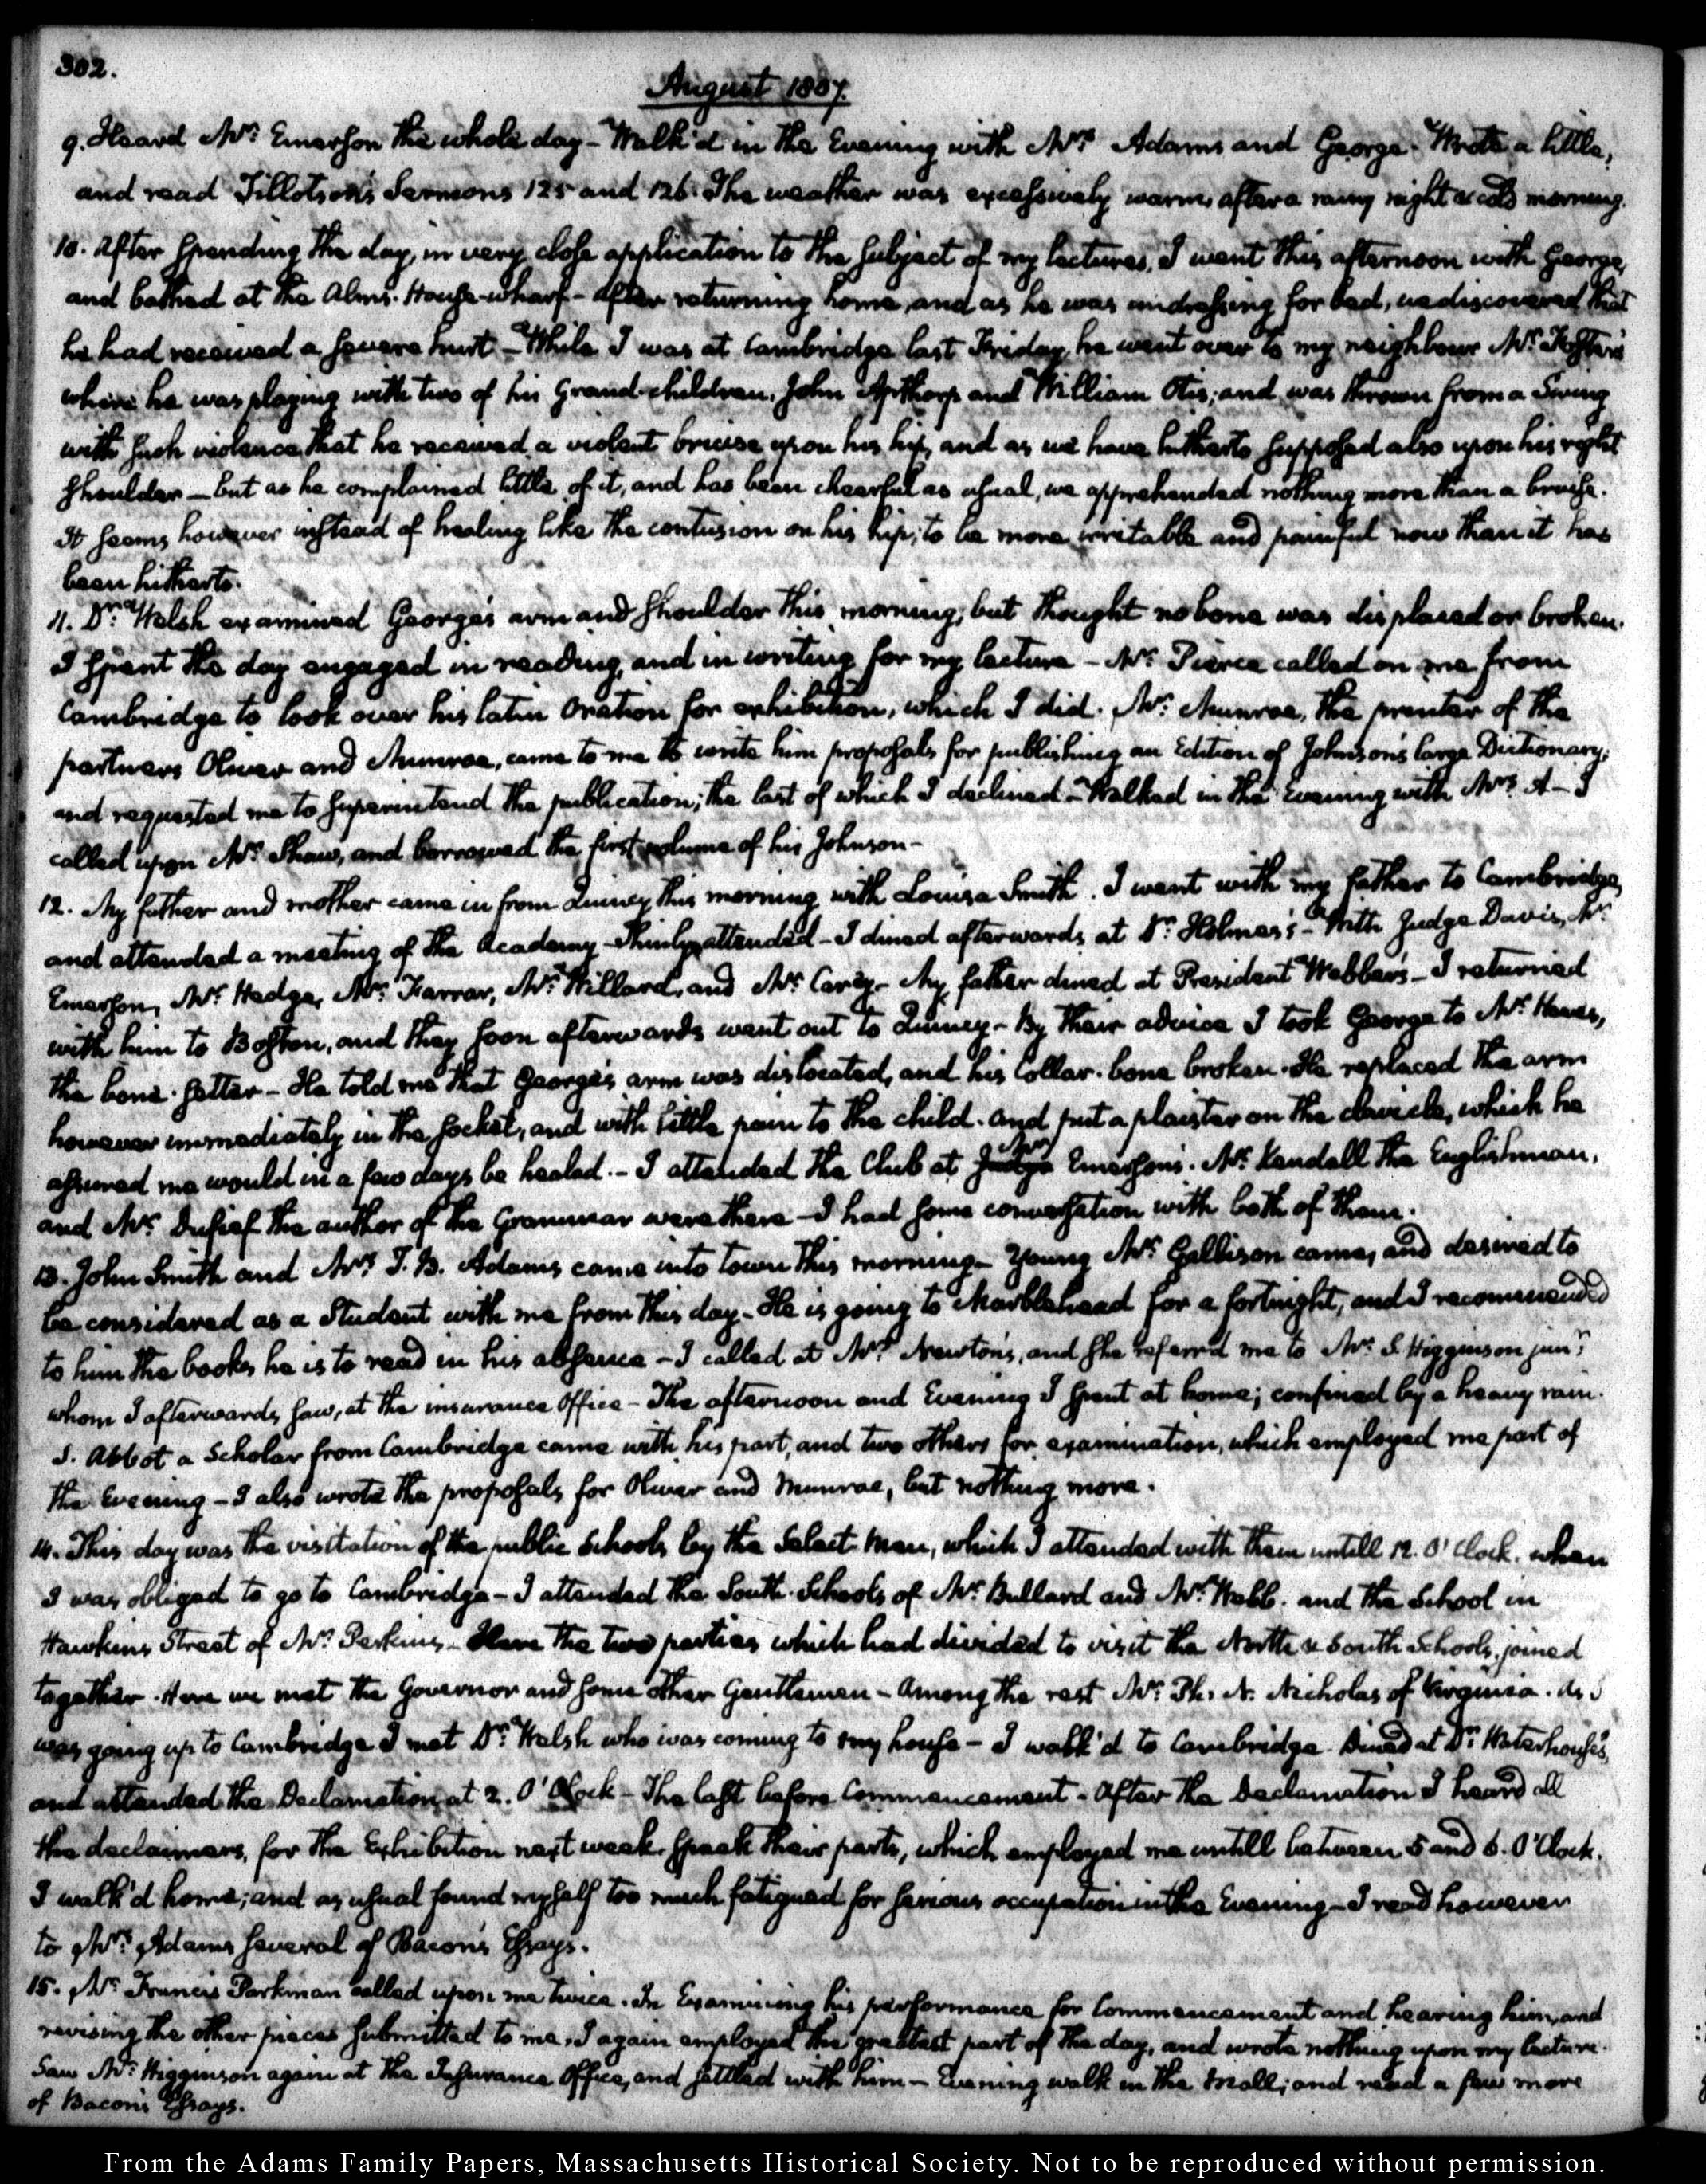 302.
August 1807.
9. Heard Mr: Emerson the whole day - Walk'd in the Evening with Mrs: Adams and George. Wrote a little,
and read Tillotson's Sermons 125 and 126. The weather was excessively warm, after a rainy night & cold morning.
10. After spending the day, in very close application to the subject of my lectures, I went this afternoon with George,
and bathed at the Alms-House-wharf - After returning home, and as he was undressing for bed, we discovered that
he had received a severe hurt - While I was at Cambridge last Friday, he went over to my neighbour Mr: Foster's
where he was playing with two of his Grand-children, John Apthorp and William Otis; and was thrown from a Swing
with such violence that he received a violent bruise upon his hip, and as we have hitherto supposed also upon his right
shoulder - but as he complained little of it, and has been chearful as usual, we apprehended nothing more than a bruise.
It seems however instead of healing like the contusion on his hip, to be more irritable and painful now than it has
been hitherto.
11. Dr: Welsh examined George's arm and shoulder this morning; but thought no bone was displaced or broken.
I spent the day engaged in reading, and in writing for my lecture - Mr: Pierce called on me from
Cambridge to look over his latin Oration for exhibition, which I did. Mr: Munroe, the printer of the
partners Oliver and Munroe, came to me to write him proposals for publishing an Edition of Johnson's large Dictionary;
and requested me to superintend the publication; the last of which I declined - Walked in the Evening with Mrs: A - I
called upon Mr: Shaw, and borrowed the first volume of his Johnson -
12. My father and mother came in from Quincy this morning with Louisa Smith. I went with my father to Cambridge,
and attended a meeting of the Academy - Thinly attended - I dined afterwards at Dr: Holmes's - With Judge Davis, Mr:
Emerson, Mr: Hedge, Mr: Farrar, Mr: Willard, and Mr: Carey - My father dined at President Webber's - I returned
with him to Boston, and they soon afterwards went out to Quincy - By their advice I took George to Mr: Hewes,
the bone-setter - He told me that George's arm was dislocated, and his Collar-bone broken. He replaced the arm
however immediately in the socket, and with little pain to the child. and put a plaister on the clavicle, which he
assured me would in a few days be healed. - I attended the Club at Judge Mr: Emerson's. Mr: Kendall the Englishman,
and Mr: Dufief the author of the Grammar were there - I had some conversation with both of them.
13. John Smith and Mrs: T. B. Adams came into town this morning - Young Mr: Gallison came, and desired to
be considered as a Student with me from this day - He is going to Marblehead for a fortnight, and I recommended
to him the books he is to read in his absence - I called at Mrs: Newton's, and she referr'd me to Mr: S. Higginson junr:
whom I afterwards saw, at the insurance Office - The afternoon and Evening I spent at home; confined by a heavy rain.
S. Abbot a Scholar from Cambridge came with his part, and two others for examination, which employed me part of
the Evening - I also wrote the proposals for Oliver and Munroe, but nothing more.
14. This day was the visitation of the public Schools by the Select Men, which I attended with them untill 12. O'Clock. when
I was obliged to go to Cambridge - I attended the South-Schools of Mr: Bullard and Mr: Webb. and the School in
Hawkins Street of Mr: Perkins - Here the two parties which had divided to visit the North & South Schools, joined
together. Here we met the Governor and some other Gentlemen - Among the rest Mr: Ph. N. Nicholas of Virginia. As I
was going up to Cambridge I met Dr: Welsh who was coming to my house - I walk'd to Cambridge. Dined at Dr: Waterhouse's,
and attended the Declamation, at 2. O'Clock - The last before Commencement - After the Declamation I heard all
the declaimers, for the Exhibition next week, speak their parts, which employed me untill between 5 and 6. O'Clock.
I walk'd home; and as usual found myself too much fatigued for serious occupation in the Evening - I read however
to Mrs: Adams several of Bacon's Essays.
15. Mr: Francis Parkman called upon me twice. In Examining his performance for Commencement and hearing him, and
revising the other pieces submitted to me, I again employed the greatest part of the day, and wrote nothing upon my lecture.
Saw Mr: Higginson again at the Insurance Office, and settled with him - Evening walk in the Mall; and read a few more
of Bacon's Essays.
From the Adams Family Papers, Massachusetts Historical Society. Not to be reproduced without permission.